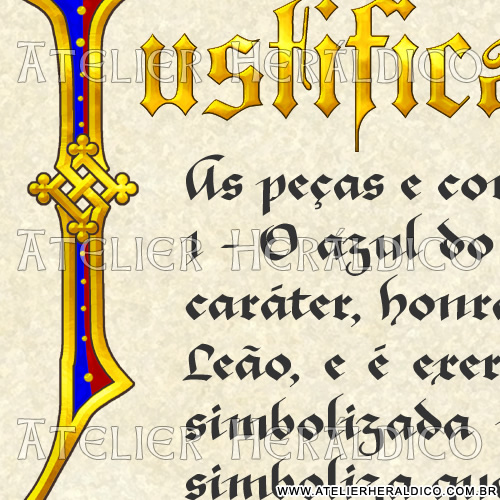 Justifica
As peças e co
1 - O azul do
caráter, honra
Leão, e é exer
simbolizada -
simboliza que
ATELIER HERÁLDICO
ATELIER HERÁLDICO
ATELIER HERÁLDICO
WWW.ATELIERHERALDICO.COM.BR